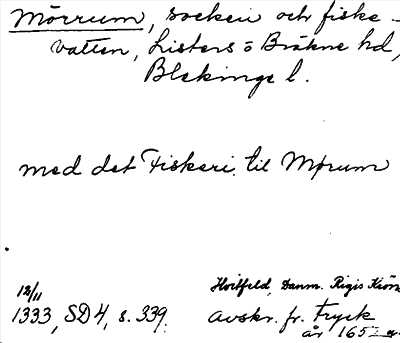 Mörrum, socken och fiske-
vatten, Listers o Bräkne hd,
Blekinge l.
med det Fiskeri til Mørum
12/11
1333, SD 4, s. 339.
Hvitfeld, Danm. Rigis Krön
avskr. fr. Tryck
år 1652